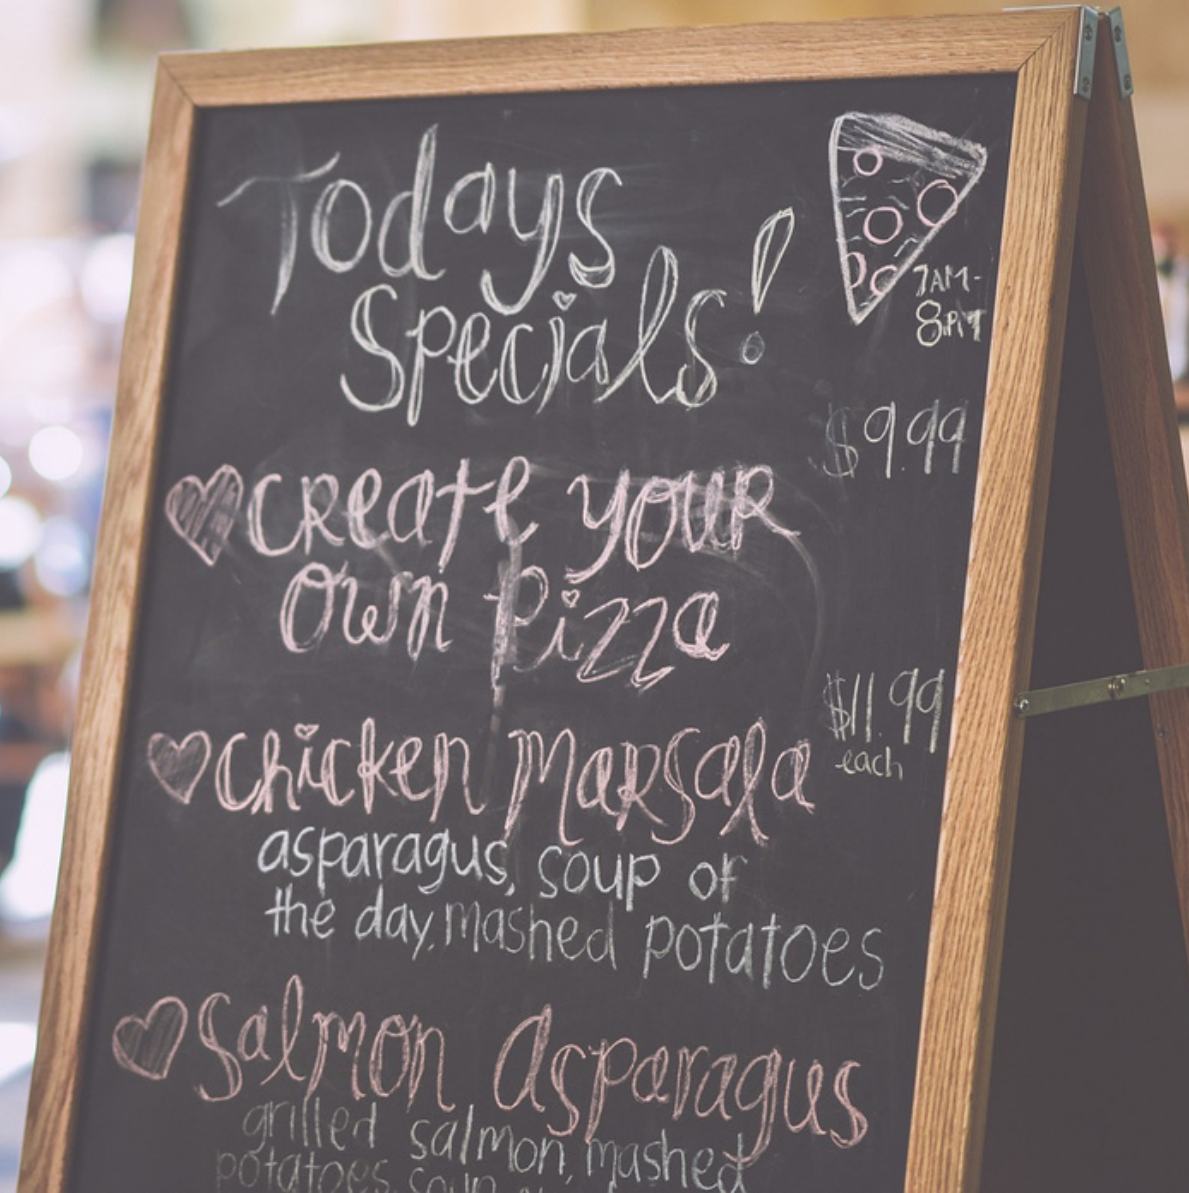 Todays
Specials!
7AM-
8PM
$9.99
create your
Own Pizza
$11.99
each
Chicken Marsala
asparagus, soup of
the day, mashed potatoes
Salmon Asparagus
grilled salmon, mashed
potatoes, soup